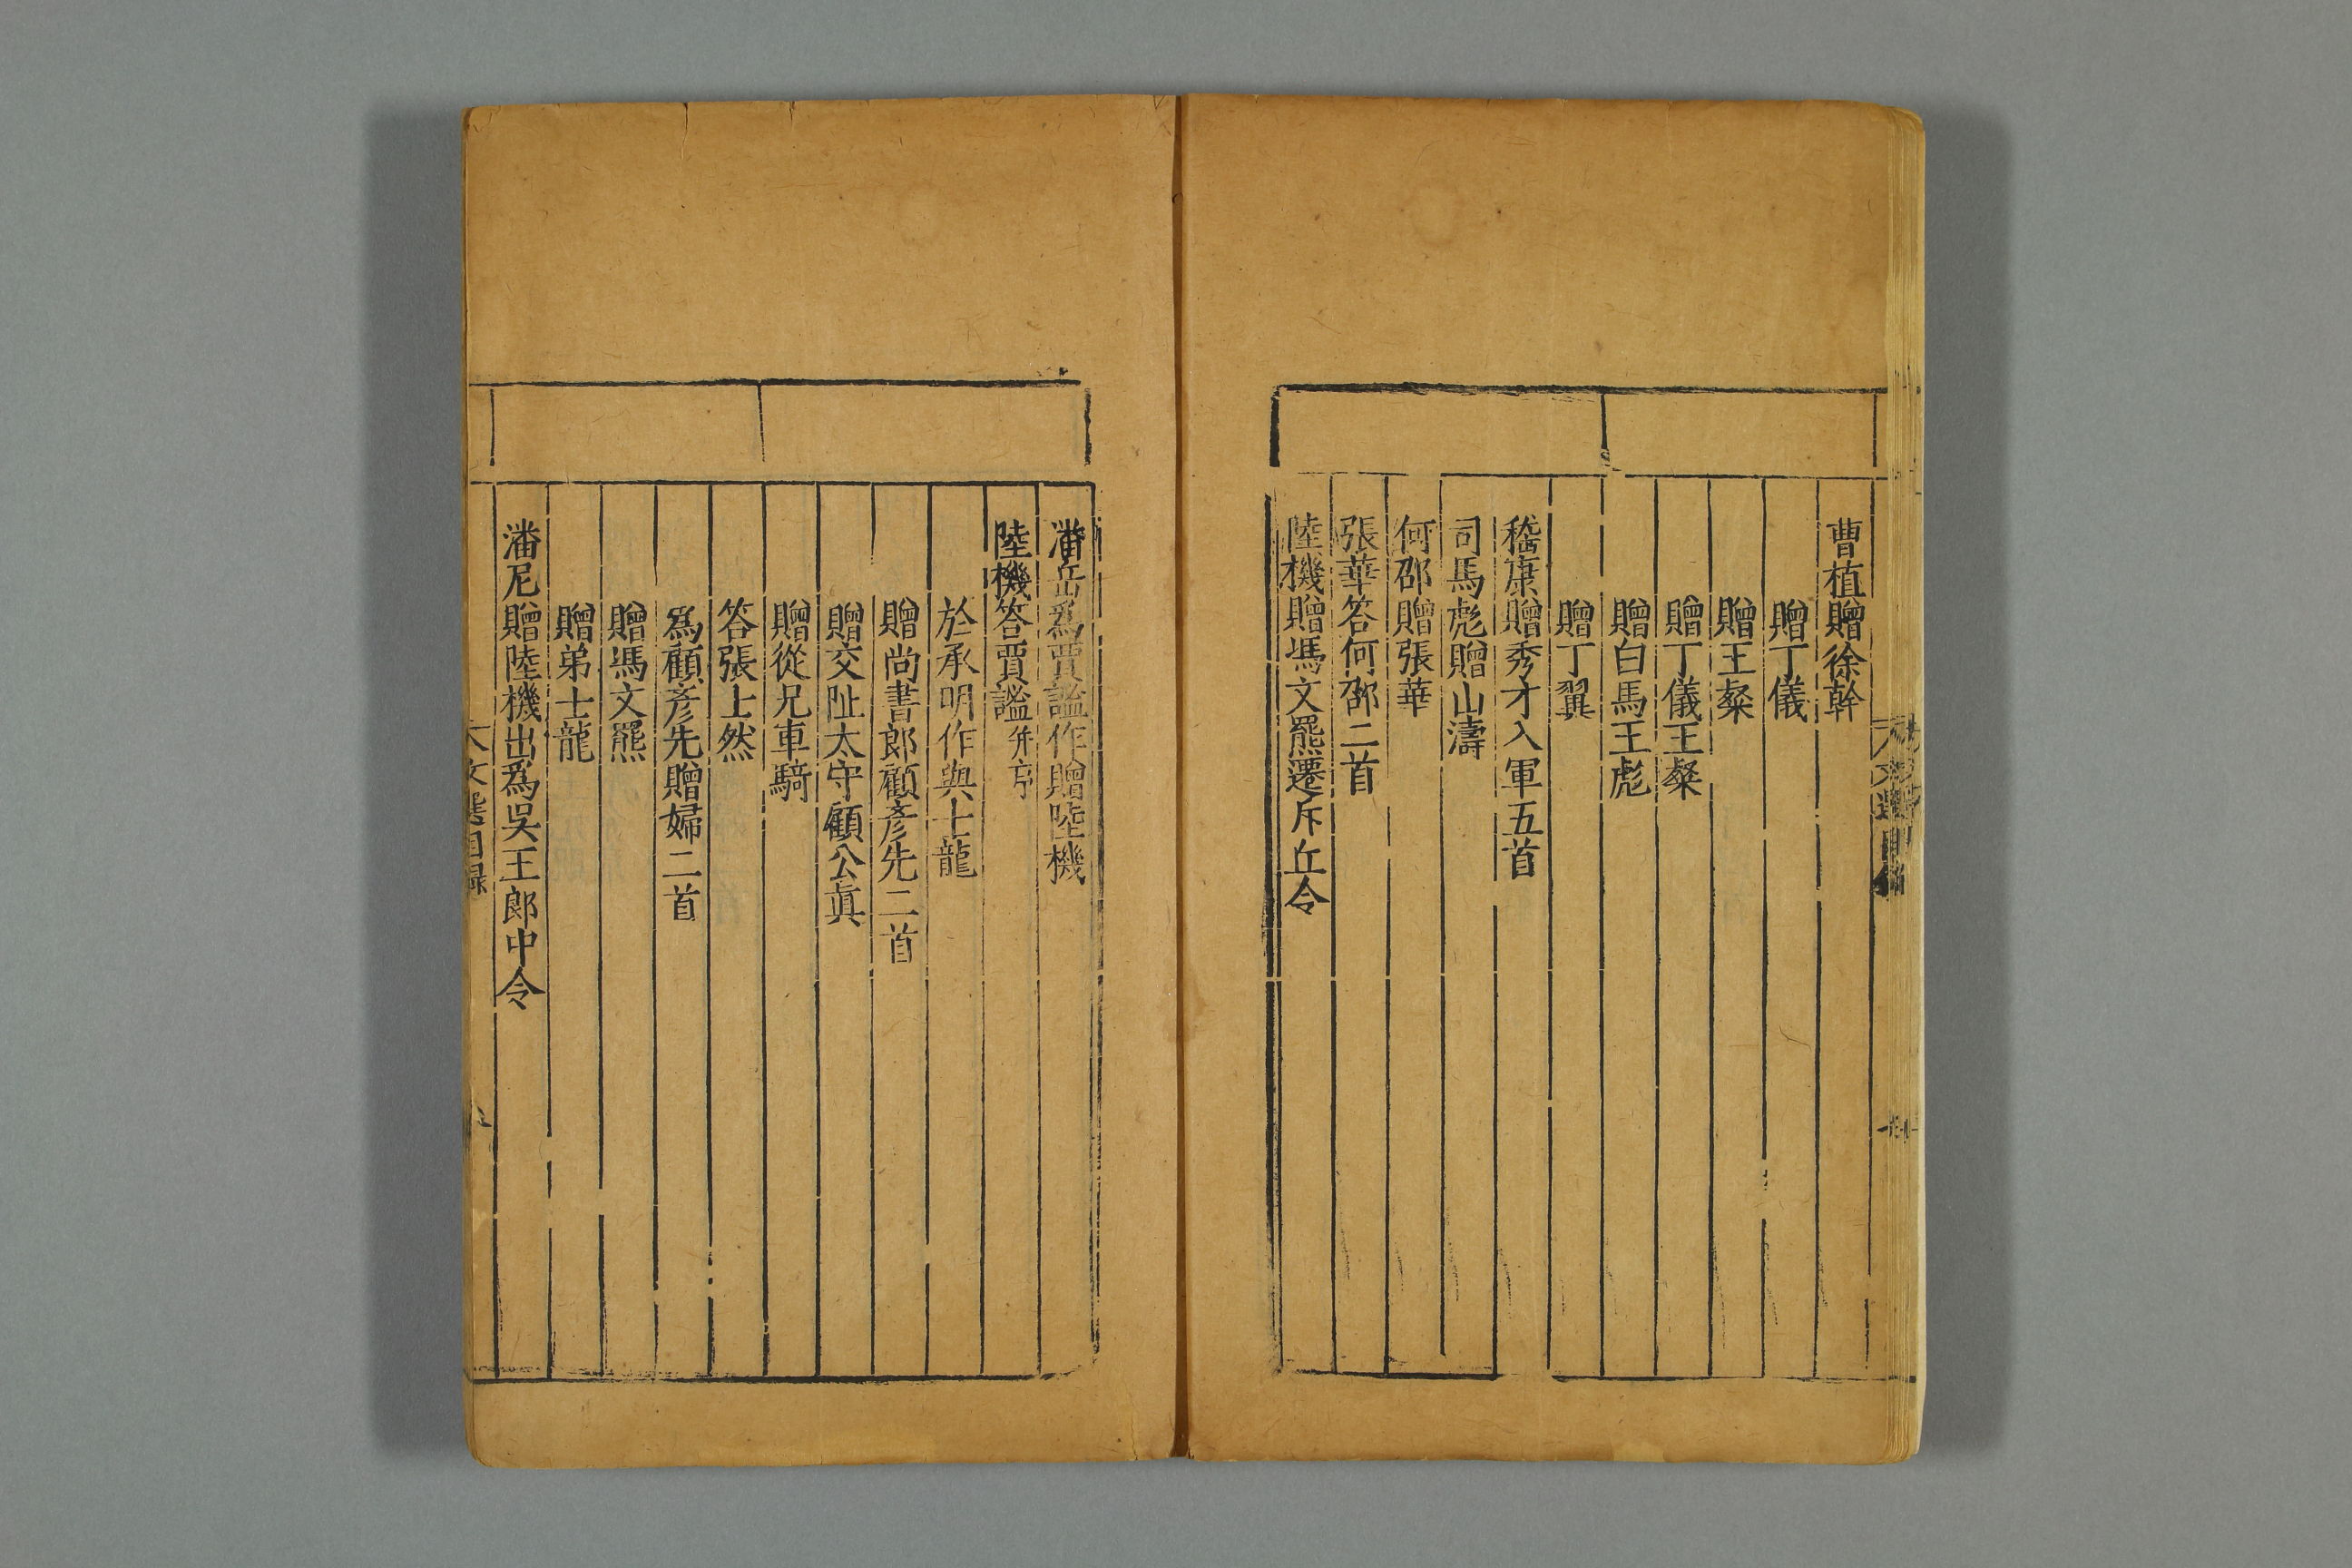 曹植贈徐幹
贈丁儀
贈王粲
贈丁儀王粲
贈白馬王彪
贈丁翼
嵇康贈秀才入軍五首
司馬彪贈山濤
何邵贈張華
張華答何邵二首
陸機贈馮文羆遷斥丘令
潘岳爲賈謐作贈陸機
陸機答賈謐并序
於承明作與士龍
贈尚書郎顧彥先二首
贈交阯太守顧公眞
贈從兄車騎
答張士然
爲顧彥先贈婦二首
贈馮文羆
贈弟士龍
潘尼贈陸機出爲吳王郎中令
文選目録